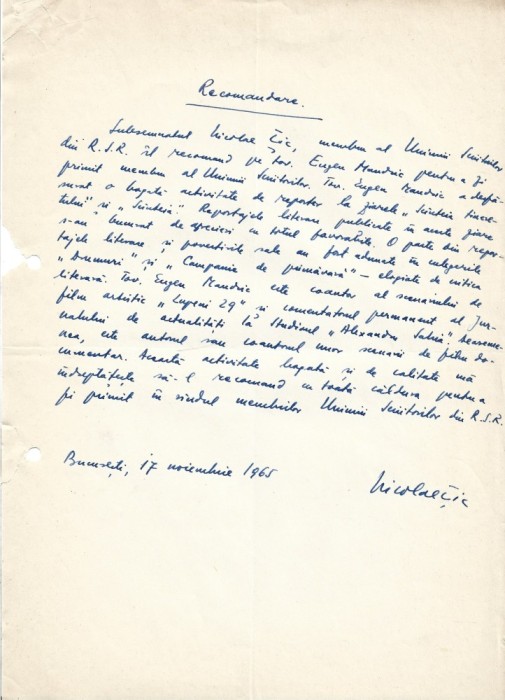 Recomandare.
Subsemnatul Nicolae Țic, membru al Uniunii Scriitorilor
din R.S.R. îl recomand pe tov. Eugen Mandric pentru a fi
primit membru al Uniunii Scriitorilor. Tov. Eugen Mandric a desfă-
șurat o bogată activitate de reporter la ziarele „Scînteia tinere-
tului" și „Scînteia". Reportajele literare publicate în aceste ziare
s-au bucurat de aprecieri cu totul favorabile. O parte din repor-
tajele literare și povestirile sale au fost adunate în culegerile
„Drumuri" și „Campania de primăvară" – elogiate de critica
literară. Tov. Eugen Mandric este coautor al scenariului de
film artistic „Lupeni 29" și comentatorul permanent al Jur-
nalului de actualități la Studioul „Alexandru Sahia"; deaseme-
nea, este autorul sau coautorul unor scenarii de film do-
cumentar. Această activitate bogată și de calitate mă
îndreptățește să-l recomand cu toată căldura pentru a
fi primit în rîndul membrilor Uniunii Scriitorilor din R.S.R.
București, 17 noiembrie 1965
Nicolae Țic